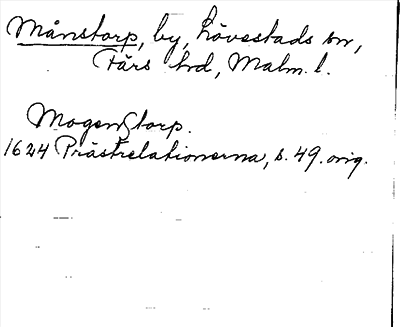 Månstorp, by, Lövestads sn,
Färs hd, Malm. l.
Mogenstorp.
1624 Prästrelationerna, s. 49. orig.